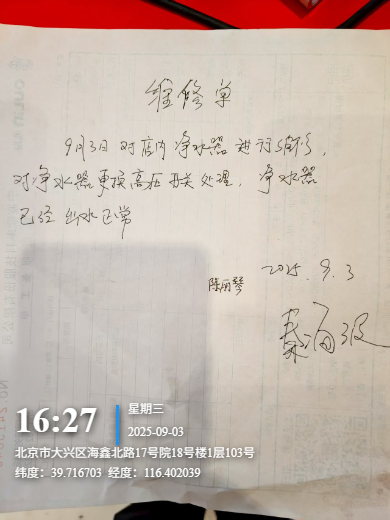 维修单
9月3日 对店内净水器进行维修，
对净水器更换高压开关处理，净水器
已经出水正常
陈丽琴 2025.9.3
16:27
星期三
2025-09-03
北京市大兴区海鑫北路17号院18号楼1层103号
纬度：39.716703 经度：116.402039